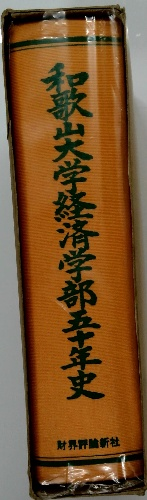 和歌山大学経済学部五十年史
財界評論新社